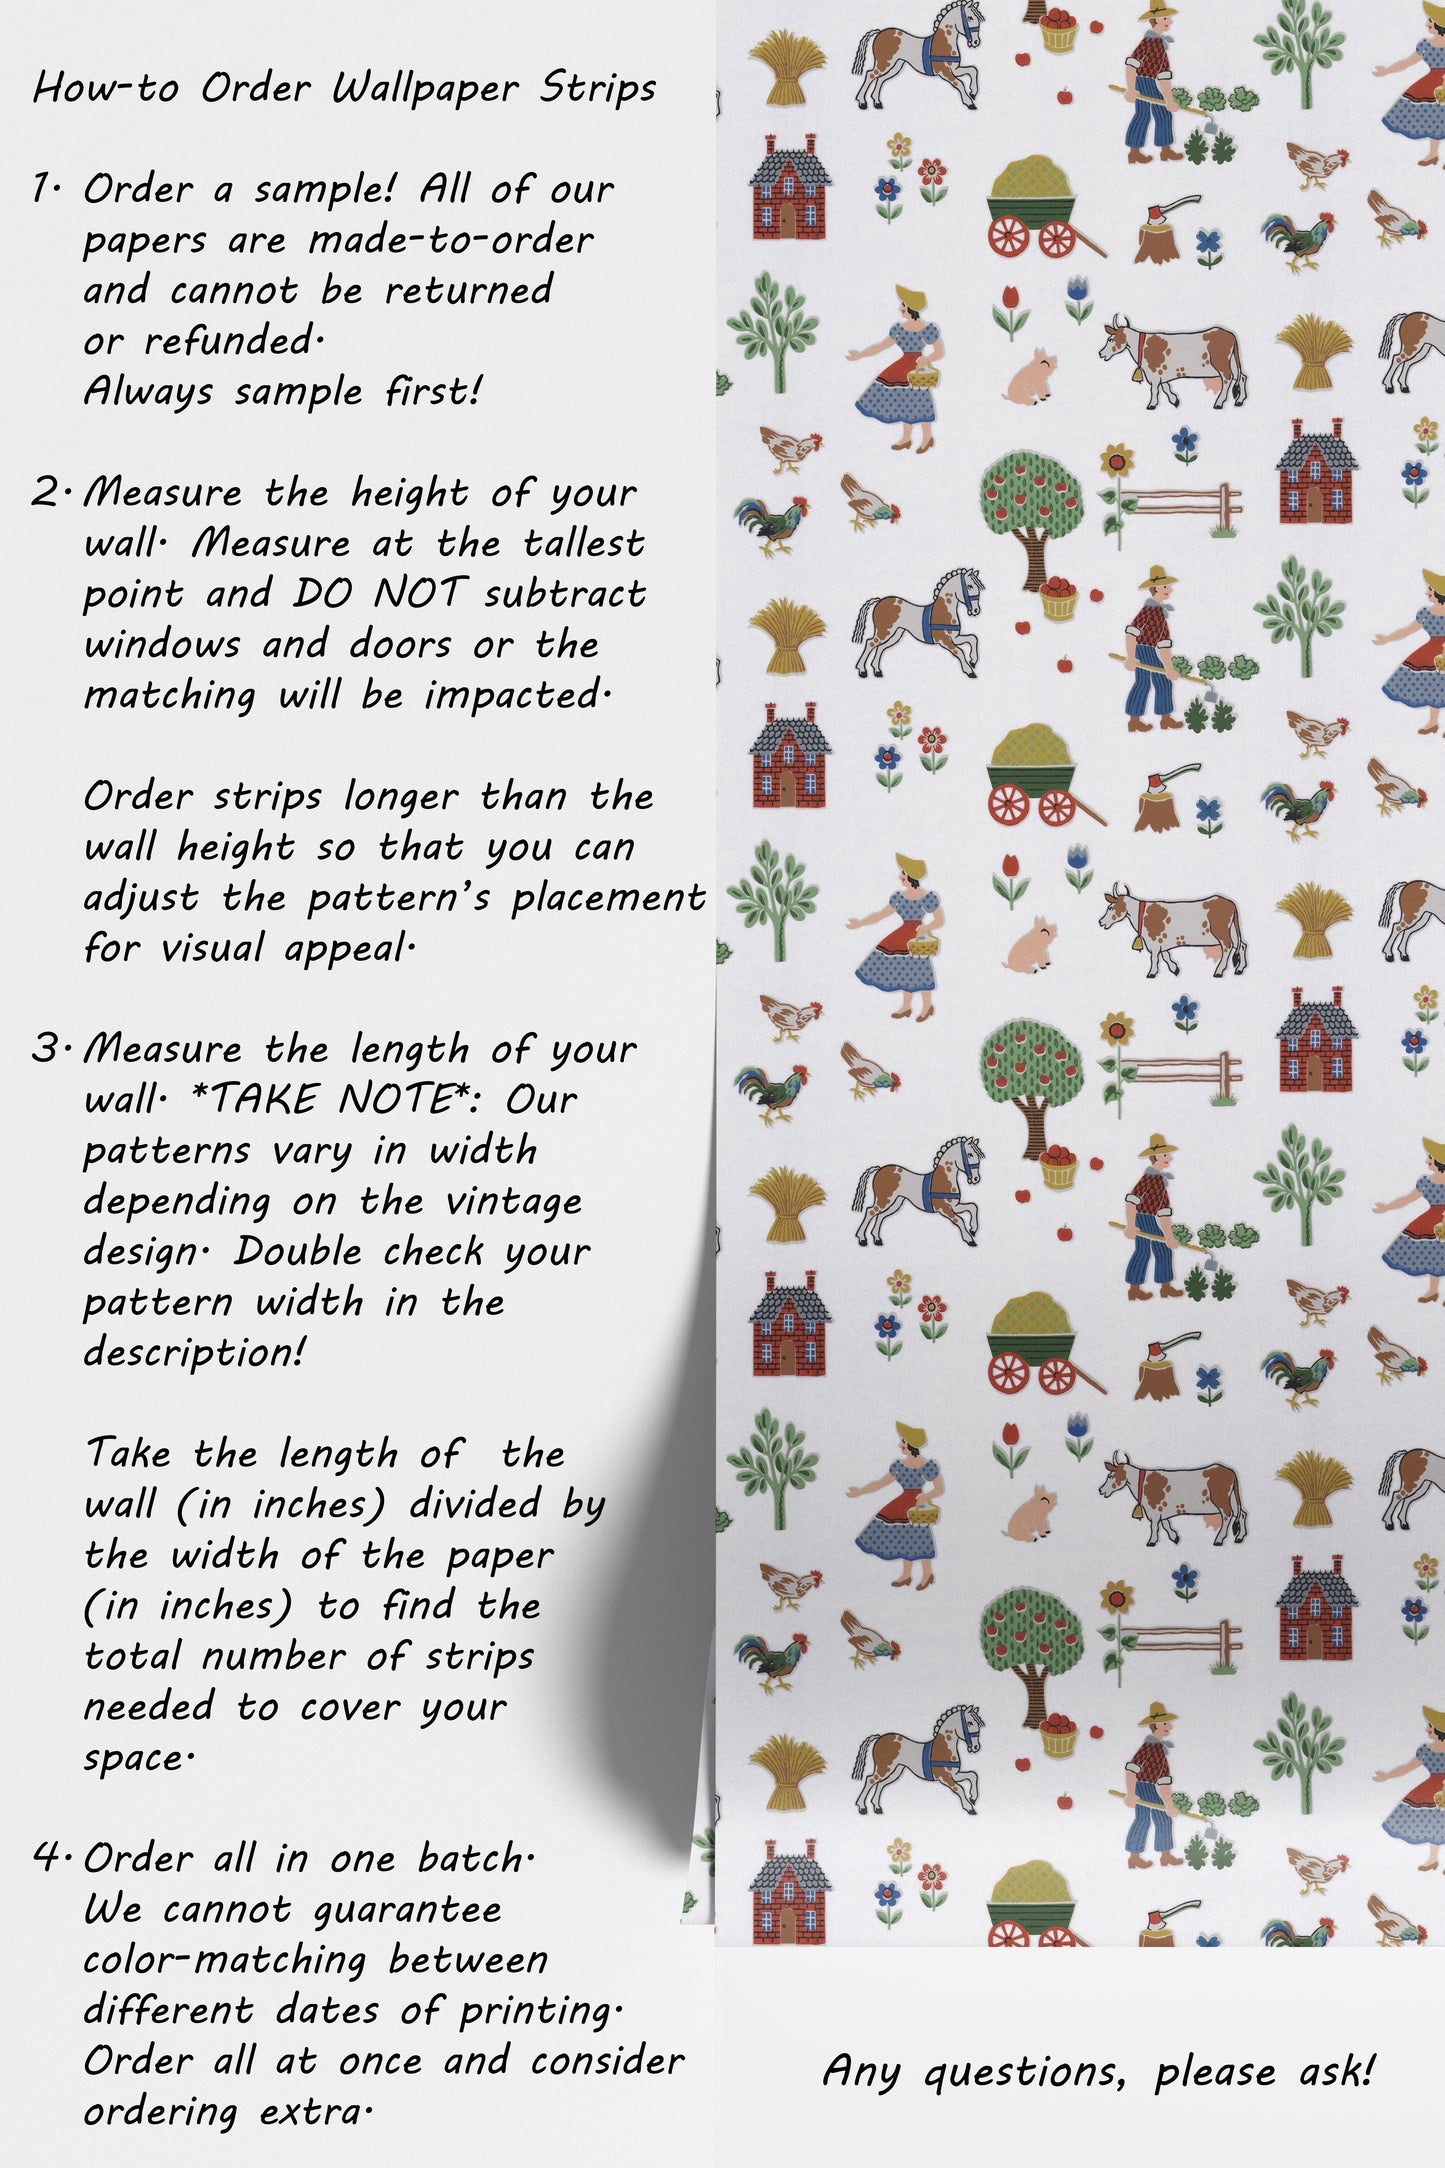 How-to Order Wallpaper Strips
1. Order a sample! All of our
papers are made-to-order
and cannot be returned
or refunded.
Always sample first!
2. Measure the height of your
wall. Measure at the tallest
point and DO NOT subtract
windows and doors or the
matching will be impacted.
Order strips longer than the
wall height so that you can
adjust the pattern's placement
for visual appeal.
3. Measure the length of your
wall. *TAKE NOTE*: Our
patterns vary in width
depending on the vintage
design. Double check your
pattern width in the
description!
Take the length of  the
wall (in inches) divided by
the width of the paper
(in inches) to find the
total number of strips
needed to cover your
space.
4. Order all in one batch.
We cannot guarantee
color-matching between
different dates of printing.
Order all at once and consider
ordering extra.
Any questions, please ask!